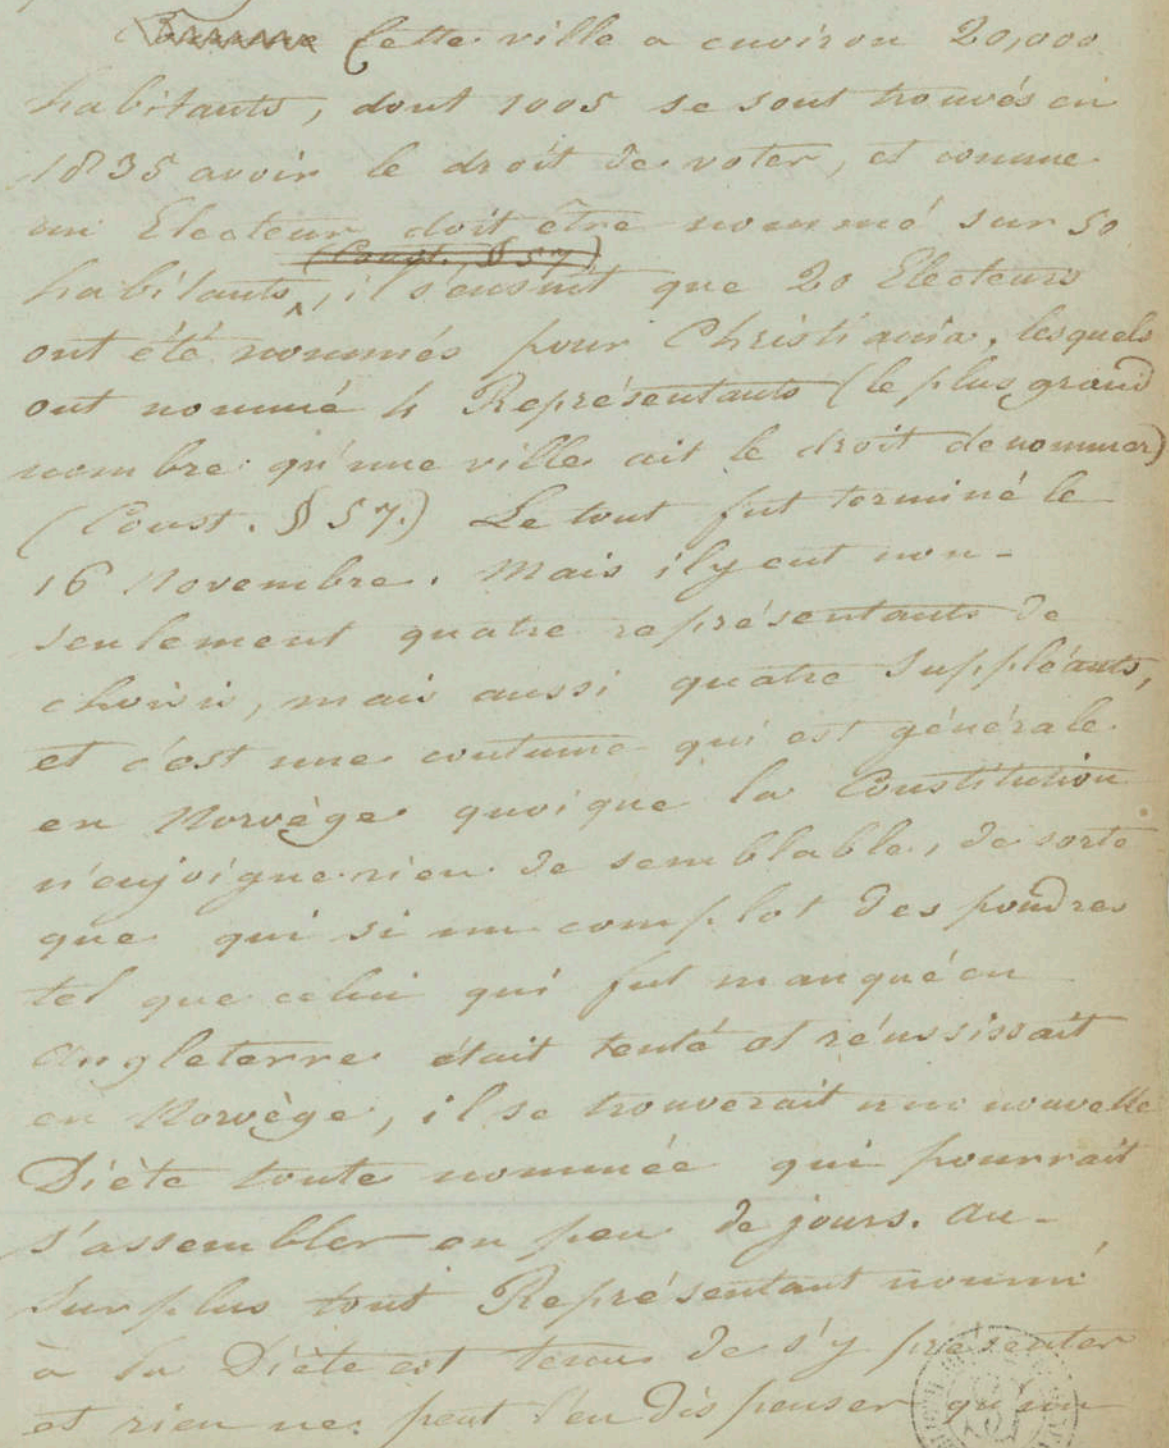 Cette ville a environ 20,000
habitants, dont 1005 se sont trouvés en
1835 avoir le droit de voter, et comme
un Electeur doit être nommé sur 50
(Const. § 57)
habitants, il s'ensuit que 20 Electeurs
ont été nommés pour Christiania, lesquels
ont nommé 4 Représentants (le plus grand
nombre qu'une ville ait le droit de nommer)
(Const. § 57.) Le tout fut terminé le
16 Novembre. Mais il y eut non-
seulement quatre représentants de
choisis, mais aussi quatre Suppléants,
et c'est une coutume qui est générale
en Norvège quoique la Constitution
n'enjoigne rien de semblable, de sorte
que qui si un complot des poudres
tel que celui qui fut manqué en
Angleterre était tenté et réussissait
en Norvège, il se trouverait une nouvelle
Diète toute nommée qui pourrait
s'assembler en peu de jours. Au-
surplus tout Représentant nommé
à la Diète est tenu de s'y présenter
et rien ne peut l'en dispenser qu'un